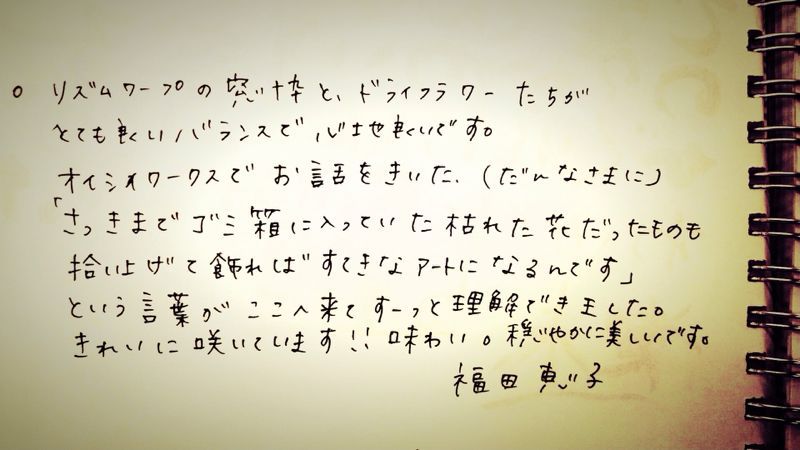 ○ リズムワープの窓枠と、ドライフラワーたちが
とても良いバランスで心地良いです。
オイシイワークスでお話をきいた、(だんなさまに)
「さっきまでゴミ箱に入っていた枯れた花だったものも
拾い上げて飾ればすてきなアートになるんです」
という言葉がここへ来てすーっと理解できました。
きれいに咲いています!! 味わい。穏やかに美しいです。
福田恵子